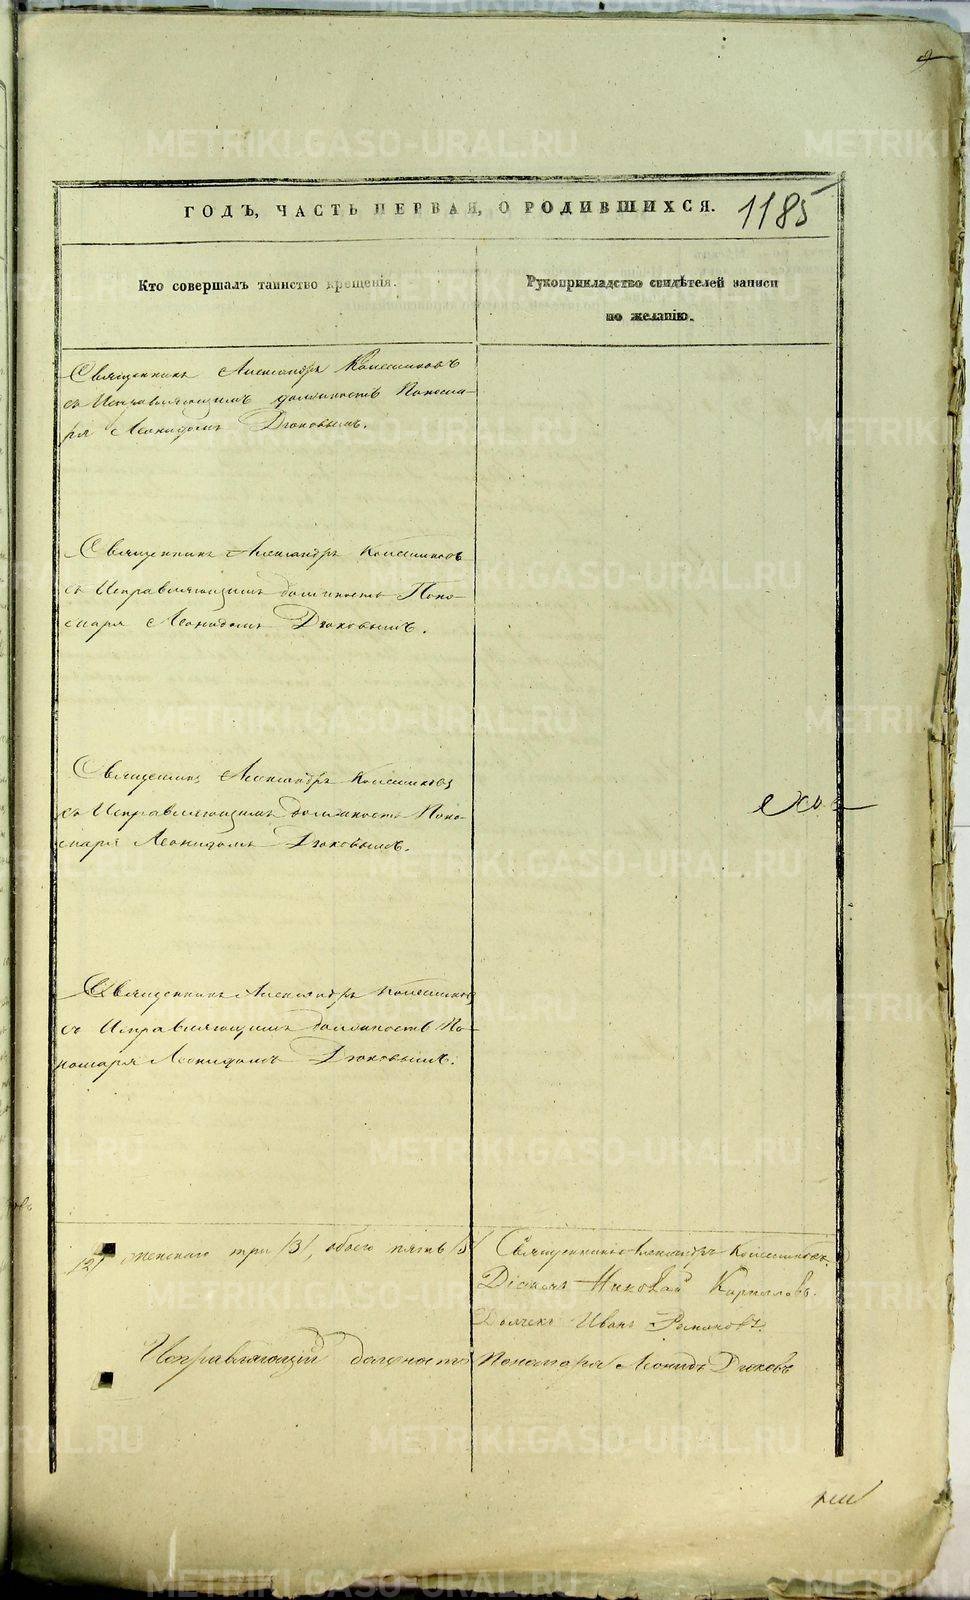 9
ГОДЪ, ЧАСТЬ ПЕРВАЯ, О РОДИВШИХСЯ. 1185
Кто совершалъ таинство крещенія.
Рукоприкладство свидѣтелей записи
по желанію.
Священникъ Александръ Колесниковъ
съ Исправляющимъ должность Понома-
ря Леонидомъ Дюковымъ.
Священникъ Александръ Колесниковъ
съ Исправляющимъ должность Поно-
маря Леонидомъ Дюковымъ.
Священникъ Александръ Колесниковъ
съ Исправляющимъ должность Поно-
маря Леонидомъ Дюковымъ.
Священникъ Александръ Колесниковъ
съ Исправляющимъ должность По-
номаря Леонидомъ Дюковымъ.
/2/ женскаго три /3/, обоего пять /5/
Священникъ Александръ Колесниковъ.
Діаконъ Николай Кирилловъ.
Дьячекъ Иванъ Романовъ.
Исправляющій должность Пономаря Леонидъ Дюковъ
METRIKI.GASO-URAL.RU